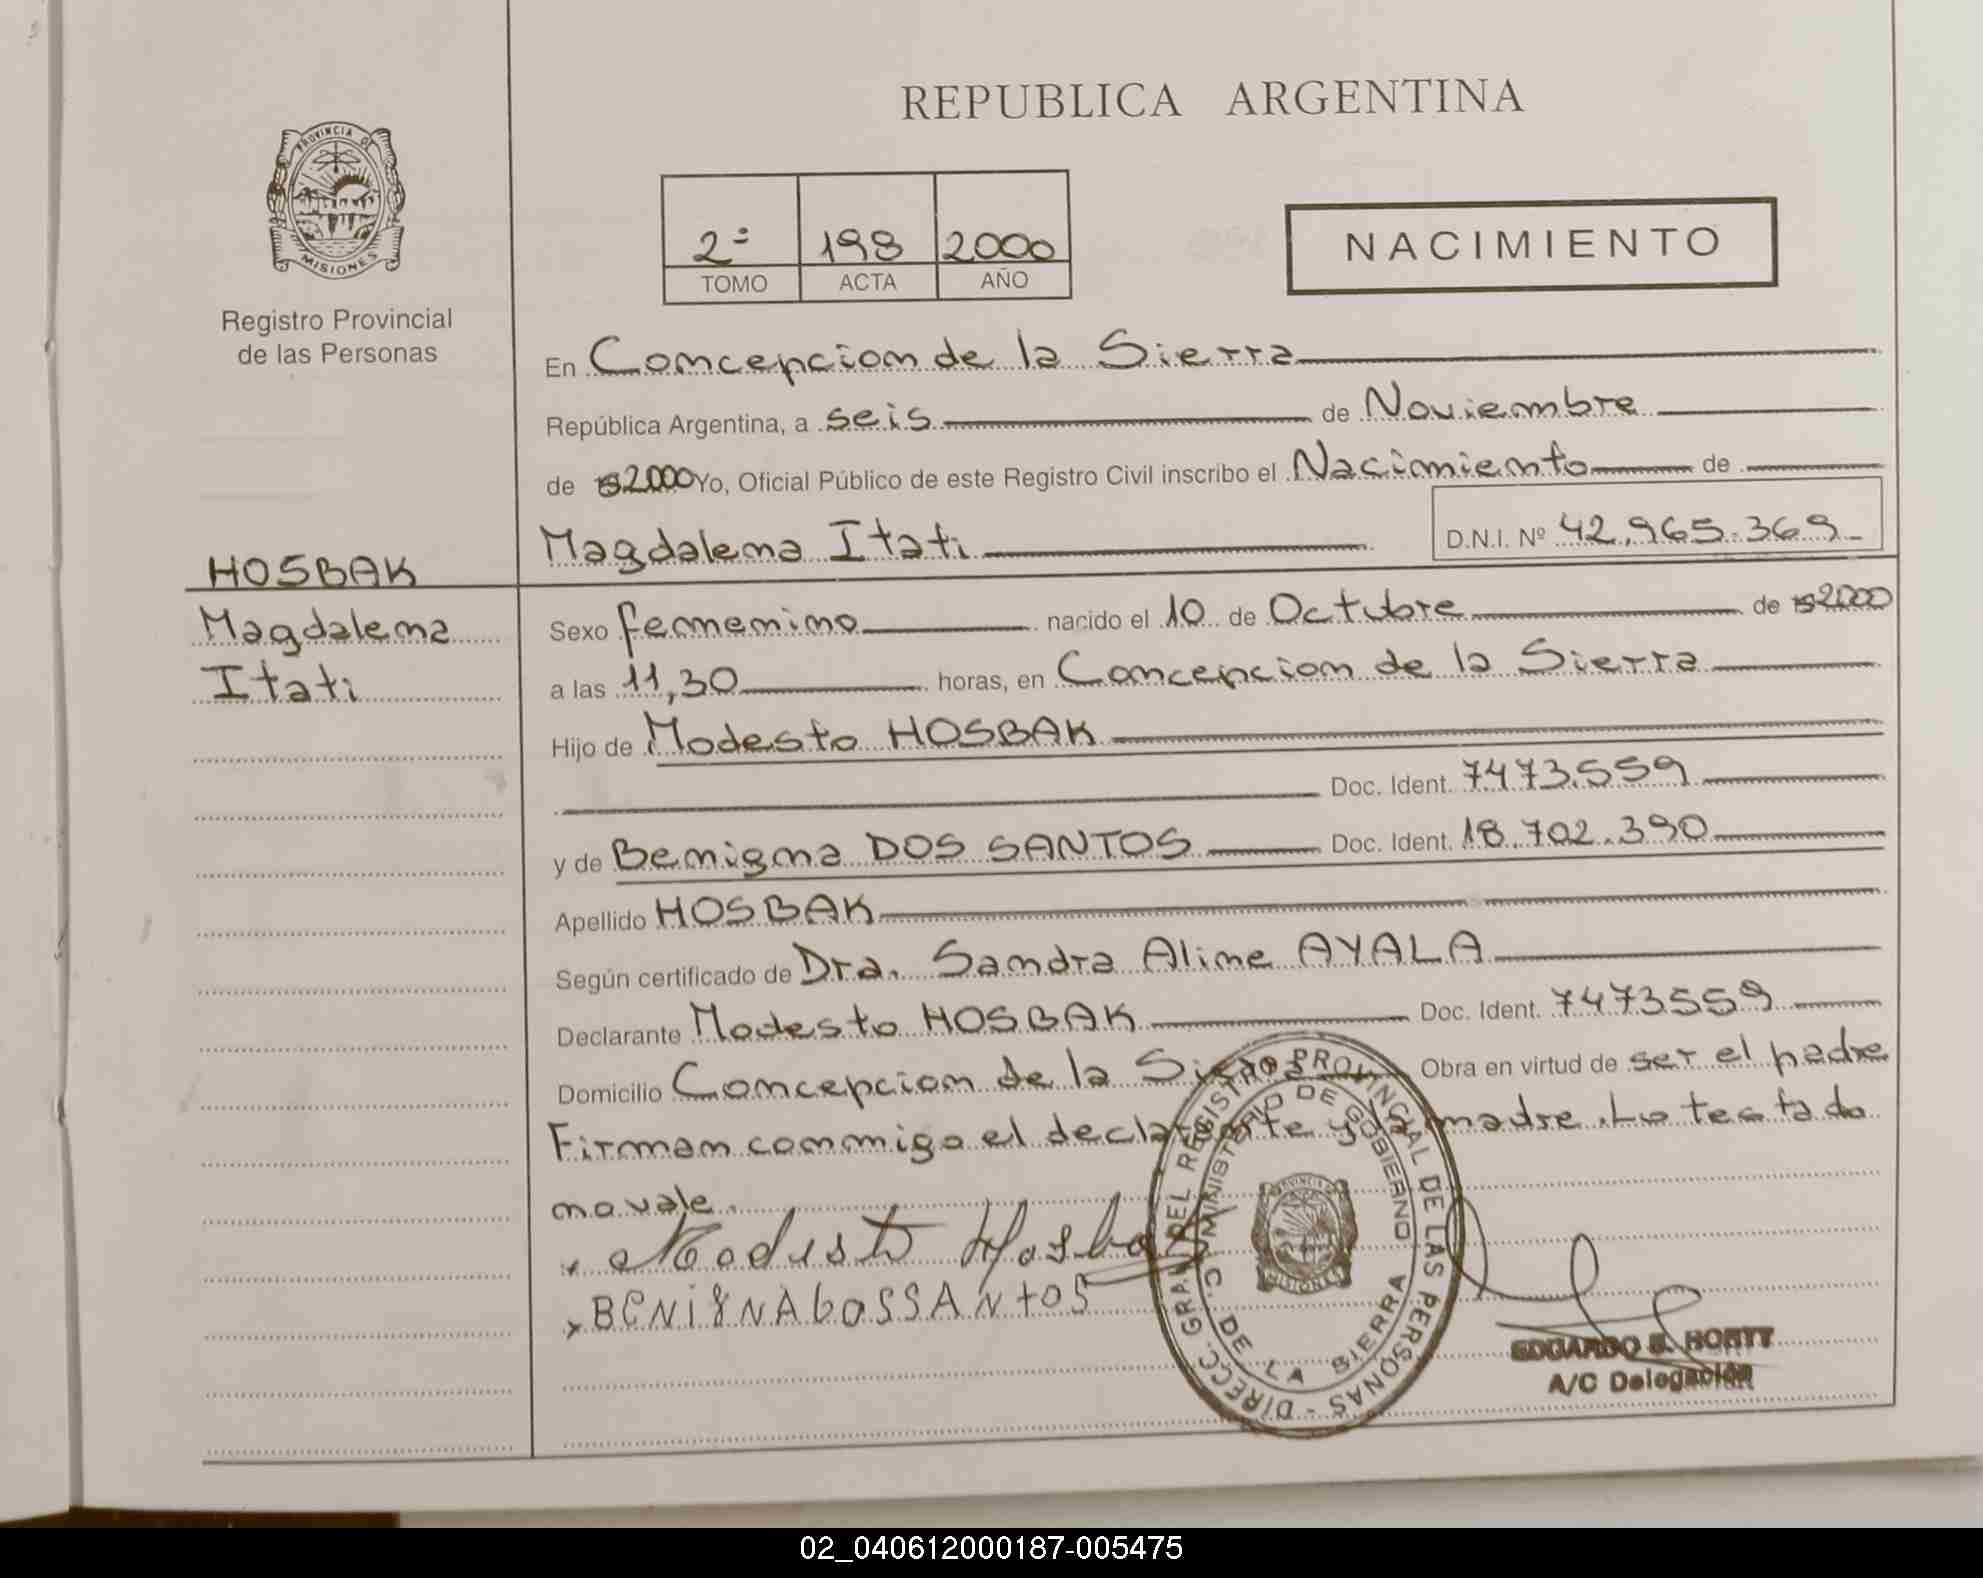 REPUBLICA ARGENTINA
PROVINCIA DE
MISIONES
Registro Provincial
de las Personas
2º 198 2000
TOMO ACTA AÑO
NACIMIENTO
En Concepcion de la Sierra
República Argentina, a seis de Noviembre
de 2000 Yo, Oficial Público de este Registro Civil inscribo el Nacimiento de
Magdalena Itati D.N.I. Nº 42.965.369
HOSBAK
Magdalena
Itati
Sexo femenino nacido el 10 de Octubre de 2000
a las 11,30 horas, en Concepcion de la Sierra
Hijo de Modesto HOSBAK
Doc. Ident. 7473.559
y de Benigna DOS SANTOS Doc. Ident. 18.702.390
Apellido HOSBAK
Según certificado de Dra. Sandra Aline AYALA
Declarante Modesto HOSBAK Doc. Ident. 7473559
Domicilio Concepcion de la Sierra Obra en virtud de ser el padre
Firman conmigo el declarante y la madre. Lo testado
no vale.
Modesto Hosbak
BENIGNA DOSSANTOS
DIRECC. GRAL. DEL REGISTRO PROVINCIAL DE LAS PERSONAS -
MINISTERIO DE GOBIERNO
C. DE LA SIERRA
PROVINCIA DE
MISIONES
A/C Delegación
02_040612000187-005475